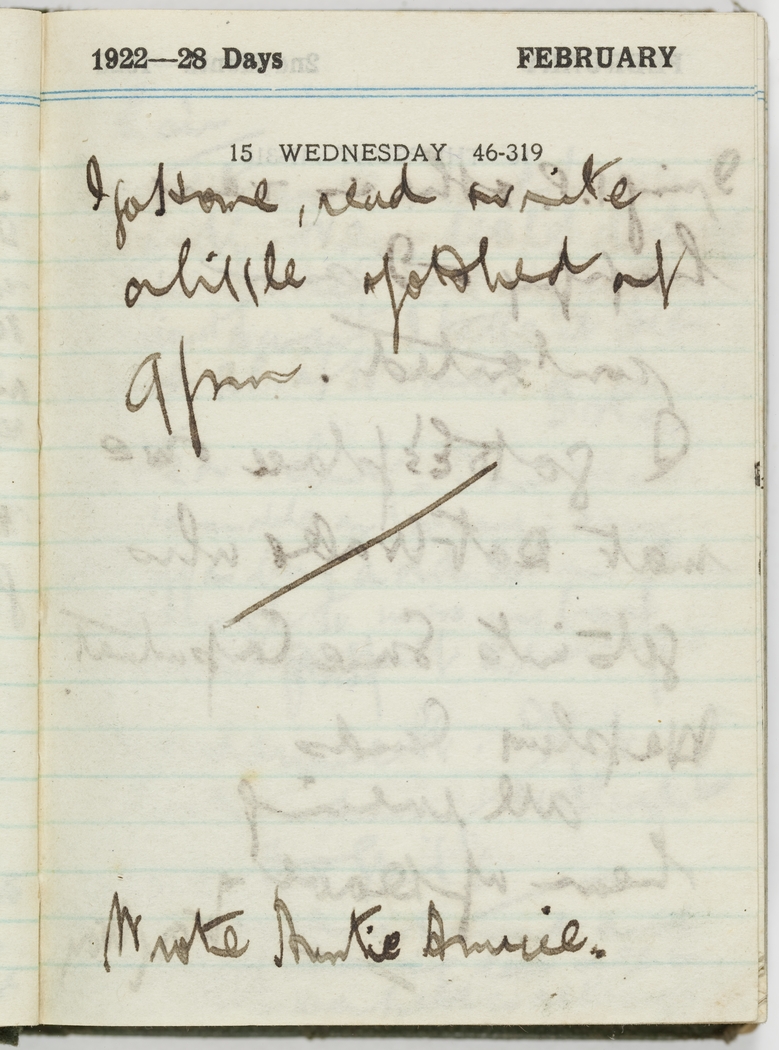 1922—28 Days FEBRUARY
15 WEDNESDAY 46-319
I go Home, read write
a little & go to bed at
9 pm.
Wrote Auntie Annie.